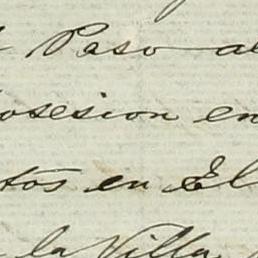 l Paso al
posesion en
tos en El
la Villa